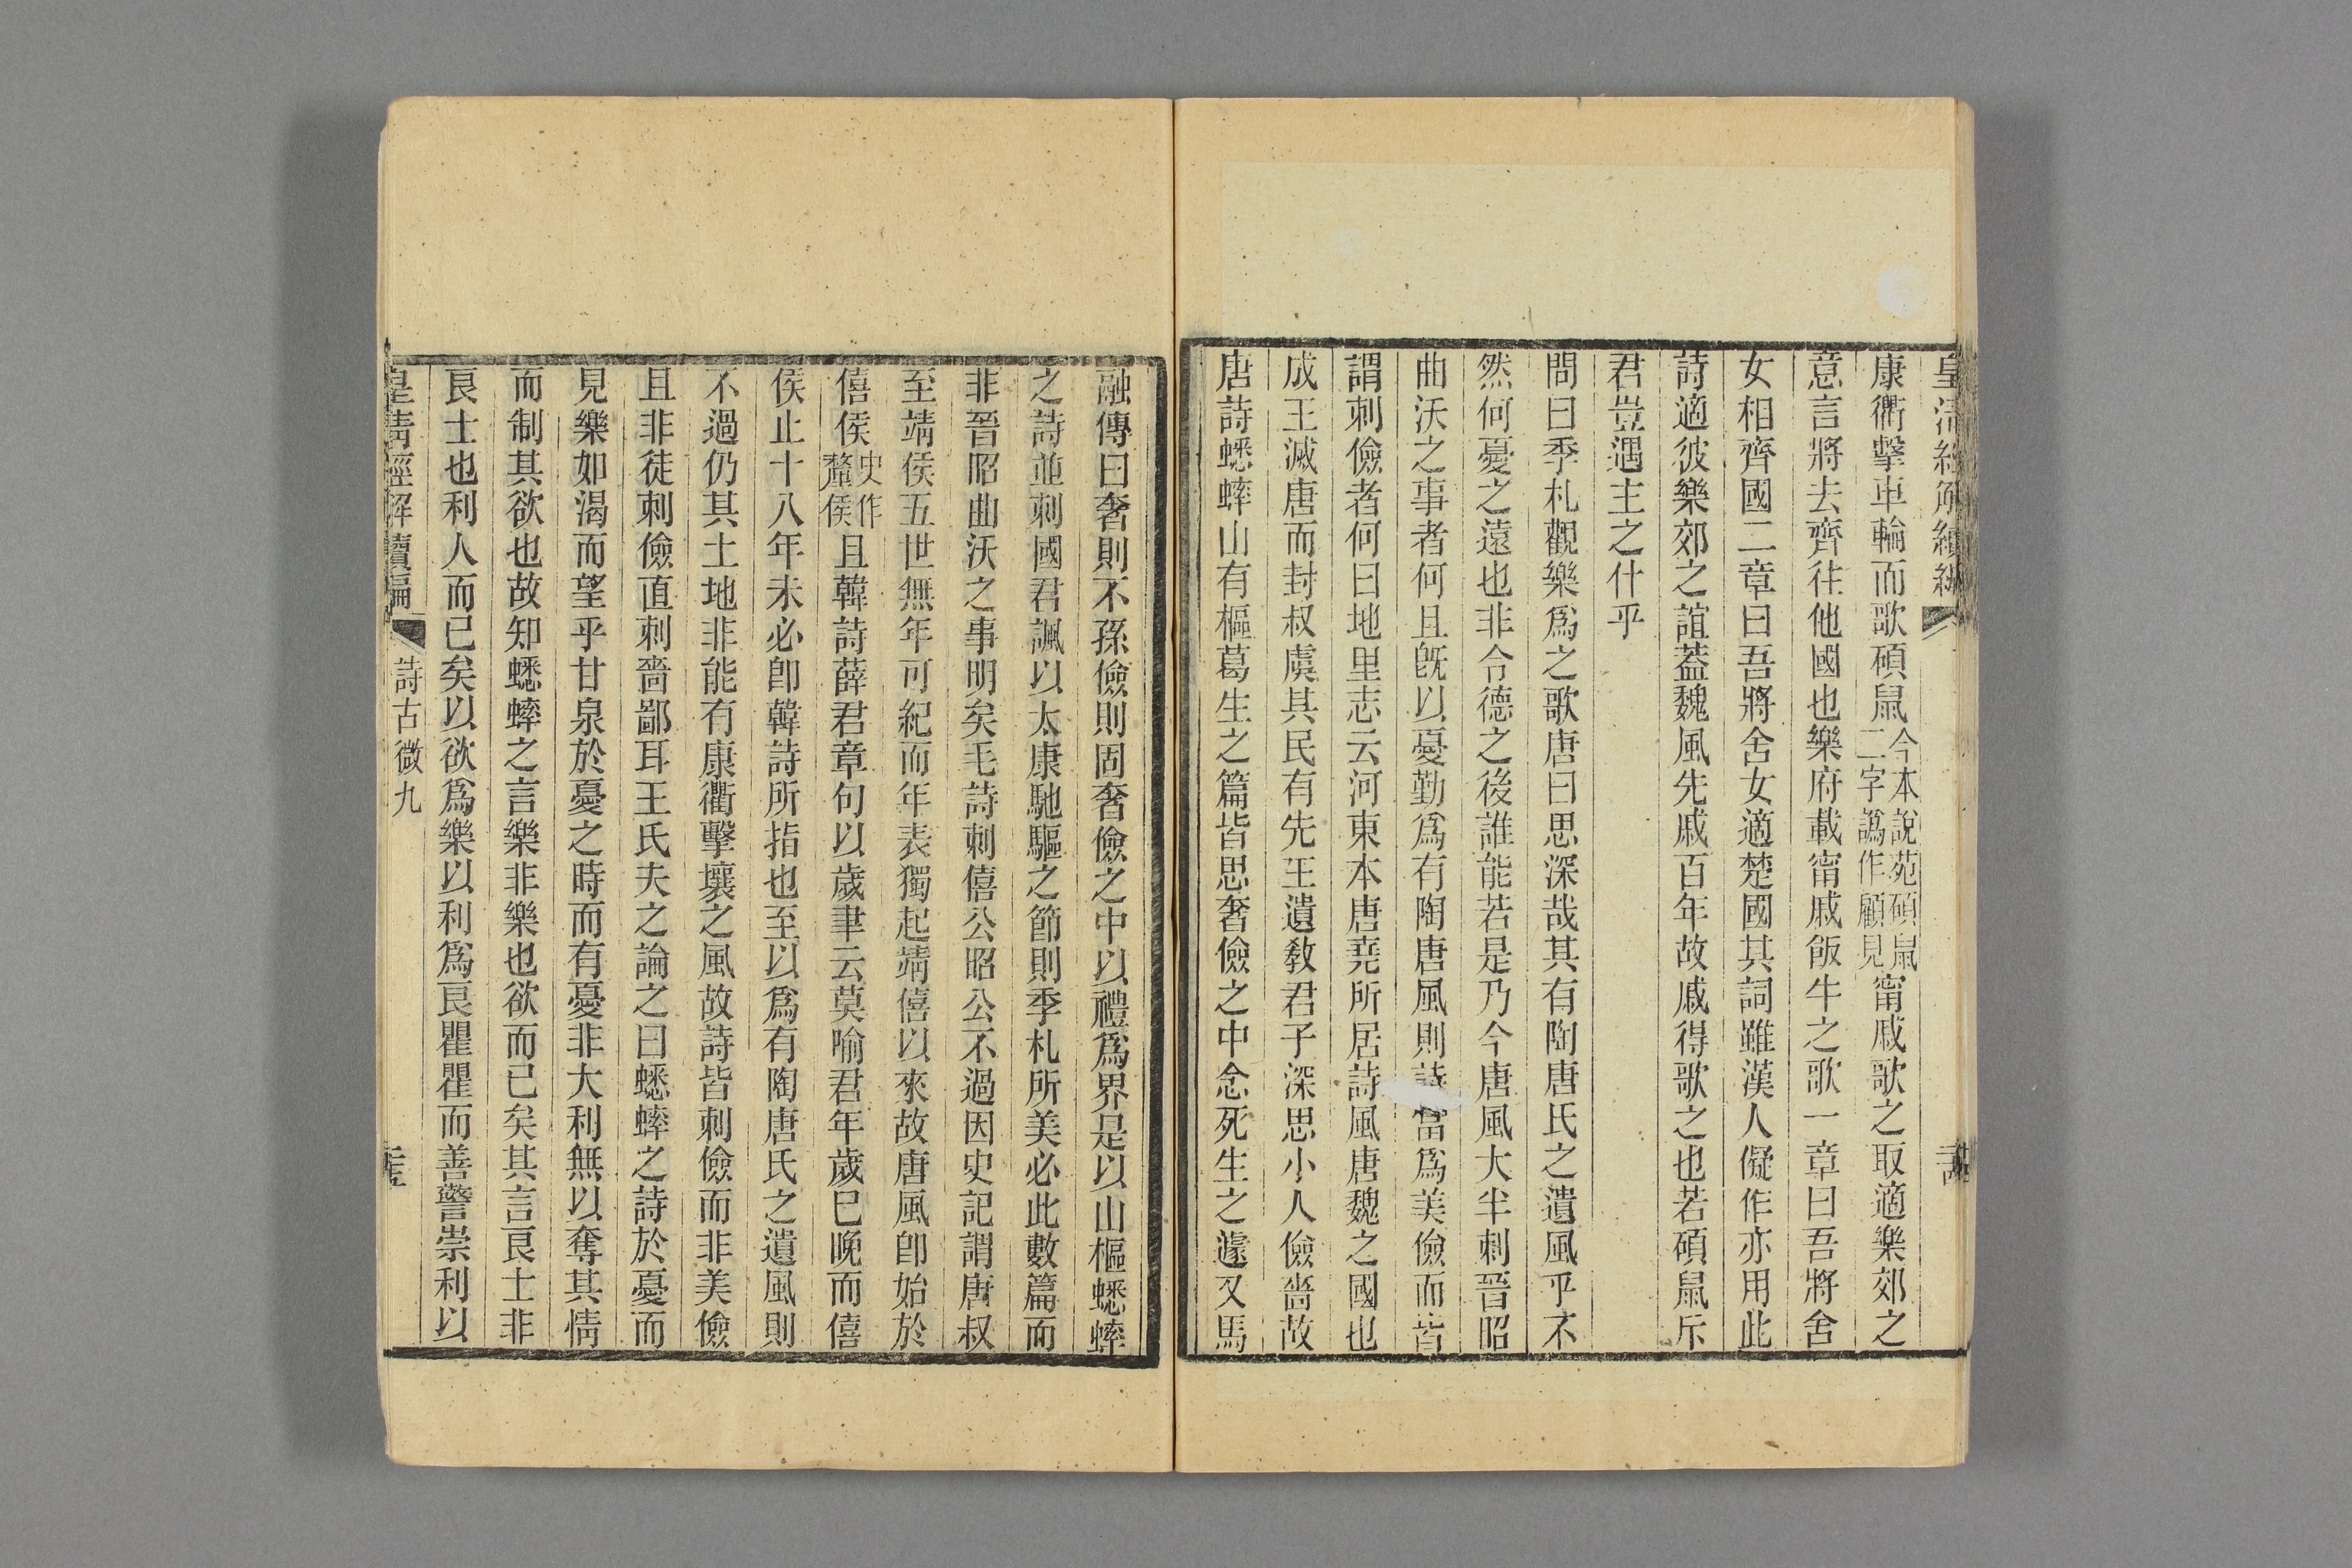 皇清經解續編
康衢擊車輪而歌碩鼠今本說苑碩鼠二字譌作顧見甯戚歌之取適樂郊之
意言將去齊往他國也樂府載甯戚飯牛之歌一章曰吾將舍
女相齊國二章曰吾將舍女適楚國其詞雖漢人儗作亦用此
詩適彼樂郊之誼蓋魏風先戚百年故戚得歌之也若碩鼠斥
君豈遇主之什乎
問曰季札觀樂爲之歌唐曰思深哉其有陶唐氏之遺風乎不
然何憂之遠也非令德之後誰能若是乃今唐風大半刺晉昭
曲沃之事者何且旣以憂勤爲有陶唐風則詩當爲美儉而皆
謂刺儉者何曰地里志云河東本唐堯所居詩風唐魏之國也
成王滅唐而封叔虞其民有先王遺敎君子深思小人儉嗇故
唐詩蟋蟀山有樞葛生之篇皆思奢儉之中念死生之遽又馬
融傳曰奢則不孫儉則固奢儉之中以禮爲界是以山樞蟋蟀
之詩並刺國君諷以太康馳驅之節則季札所美必此數篇而
非晉昭曲沃之事明矣毛詩刺僖公昭公不過因史記謂唐叔
至靖侯五世無年可紀而年表獨起靖僖以來故唐風卽始於
僖侯史作釐侯且韓詩薛君章句以歲聿云莫喻君年歲巳晚而僖
侯止十八年未必卽韓詩所指也至以爲有陶唐氏之遺風則
不過仍其土地非能有康衢擊壤之風故詩皆刺儉而非美儉
且非徒刺儉直刺嗇鄙耳王氏夫之論之曰蟋蟀之詩於憂而
見樂如渴而望乎甘泉於憂之時而有憂非大利無以奪其情
而制其欲也故知蟋蟀之言樂非樂也欲而已矣其言良士非
良士也利人而已矣以欲爲樂以利爲良瞿瞿而善警崇利以
皇清經解續編
詩古微九